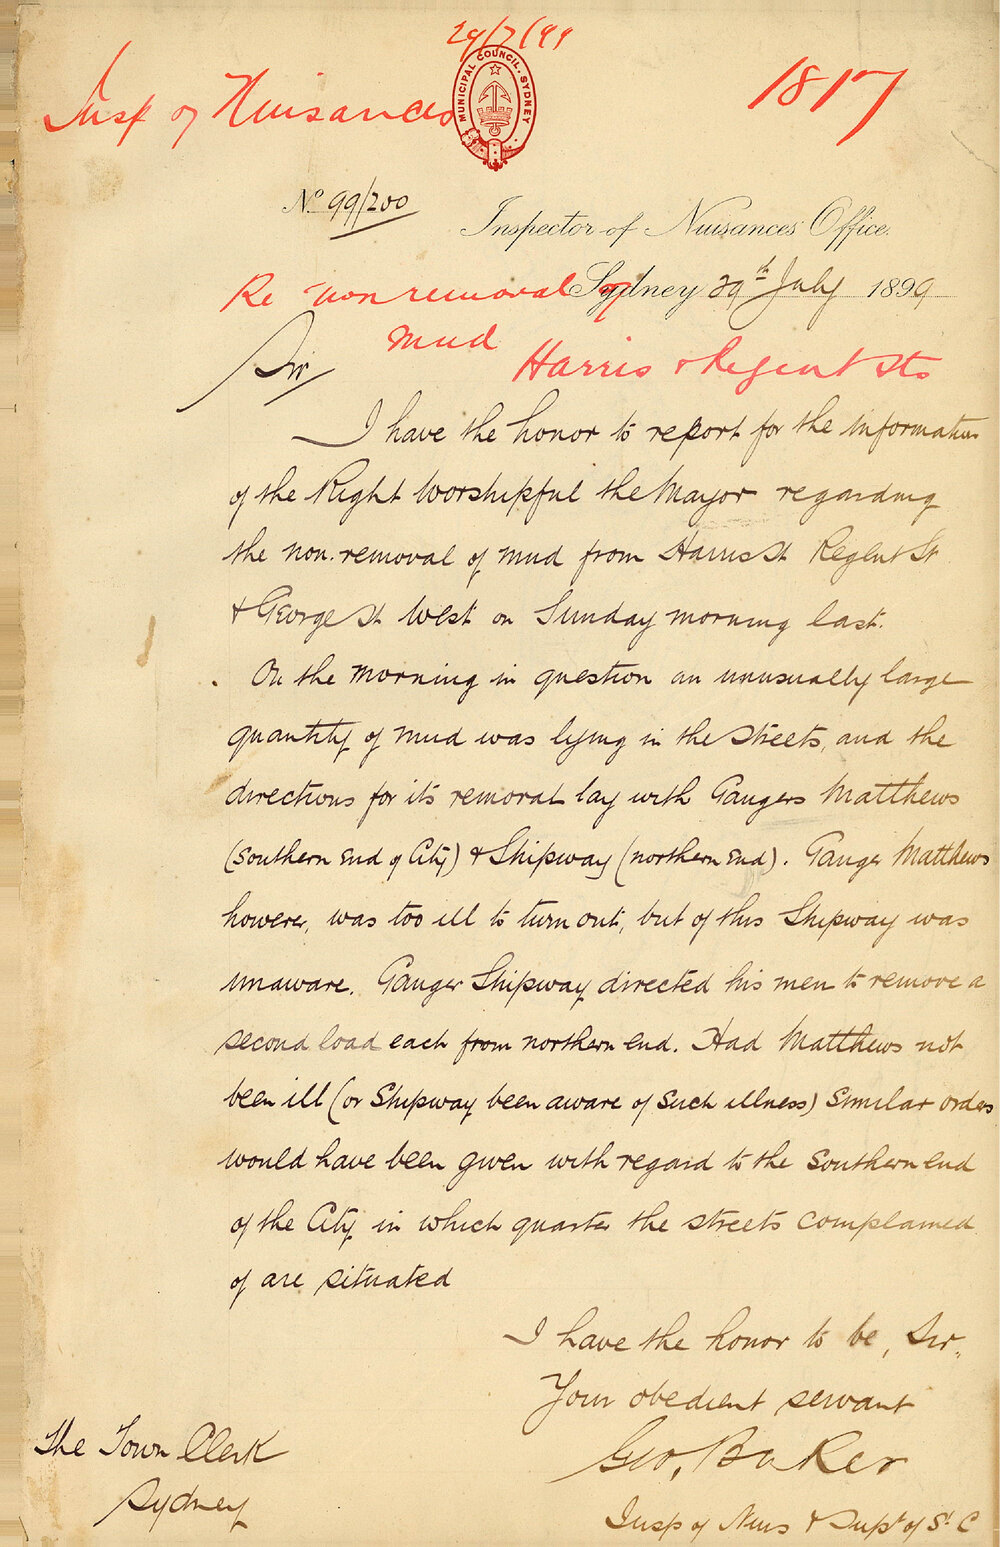 29/7/99
MUNICIPAL COUNCIL. SYDNEY
Insp of Nuisances
1817
No 99/200
Inspector of Nuisances Office.
Sydney 29th July 1899
Re non removal of
mud
Harris & Regent Sts
Sir
I have the honor to report for the information
of the Right Worshipful the Mayor regarding
the non. removal of mud from Harris St Regent St
& George St West on Sunday morning last.
On the morning in question an unusually large
quantity of mud was lying in the streets, and the
directions for its removal lay with Gangers Matthews
(Southern end of City) & Shipway (northern end). Ganger Matthews
however, was too ill to turn out, but of this Shipway was
unaware. Ganger Shipway directed his men to remove a
second load each from northern end. Had Matthews not
been ill (or Shipway been aware of such illness) similar orders
would have been given with regard to the Southern end
of the City in which quarter the streets complained
of are situated
I have the honor to be, Sir,
Your obedient servant
Geo. Baker
Insp of Nuis & Supt of St C
The Town Clerk
Sydney